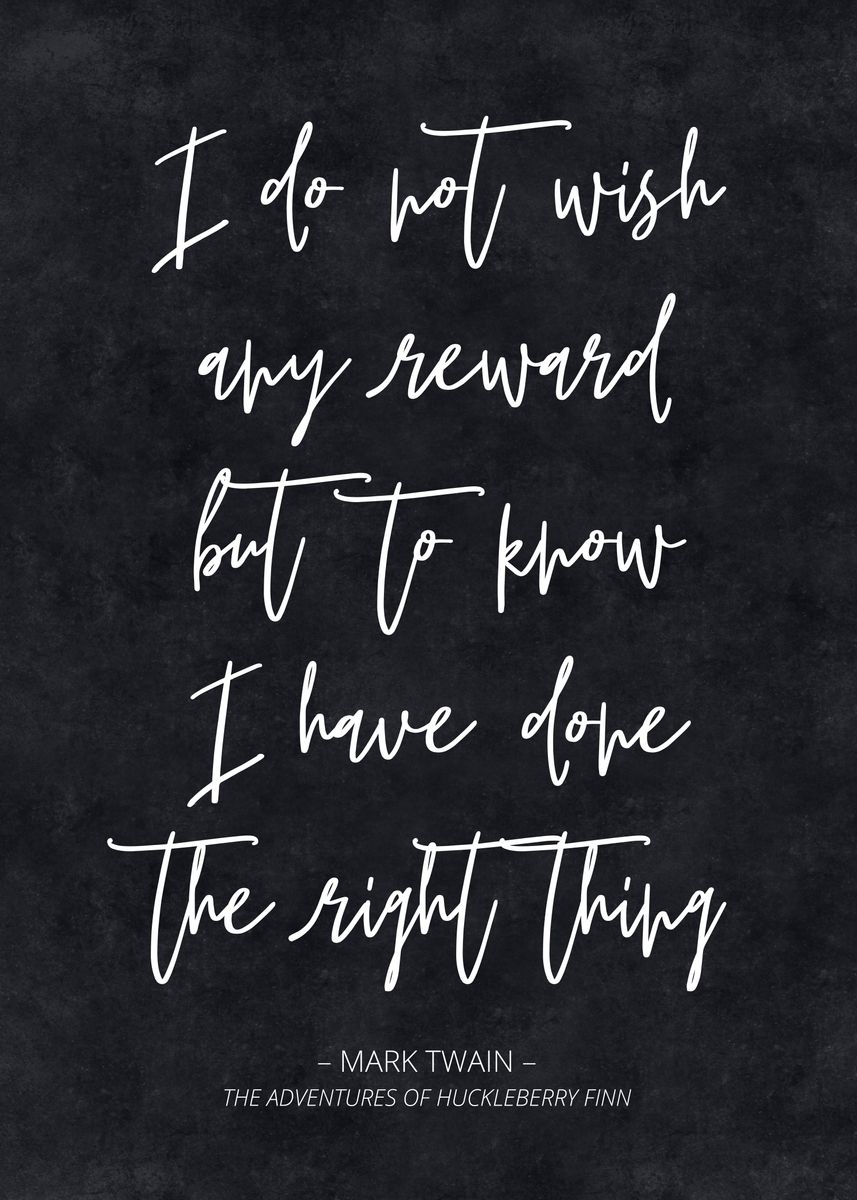 I do not wish
any reward
but to know
I have done
the right thing
– MARK TWAIN –
THE ADVENTURES OF HUCKLEBERRY FINN